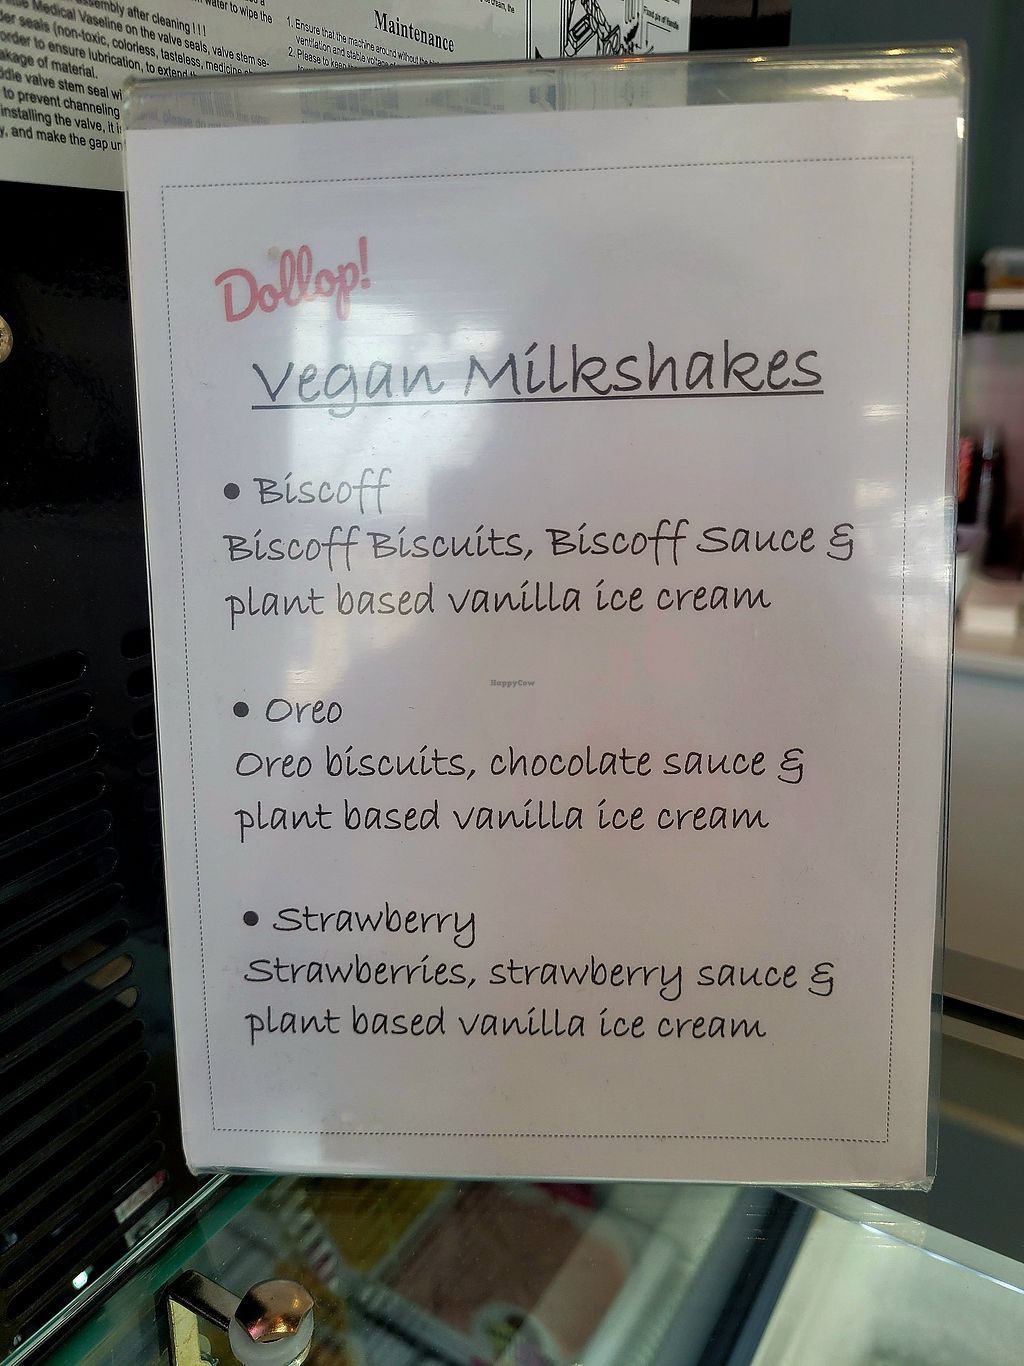 assembly after cleaning ! ! !
Medical Vaseline on the valve seals, valve stem se-
der seals (non-toxic, colorless, tasteless, medicine
order to ensure lubrication, to extend
akage of material.
ddle valve stem seal
to prevent channeling
installing the valve, it
y, and make the gap
water to wipe the
Maintenance
1. Ensure that the machine around without the
ventilation and stable voltage
2. Please to keep
Dollop!
Vegan Milkshakes
• Biscoff
Biscoff Biscuits, Biscoff Sauce &
plant based vanilla ice cream
HappyCow
• Oreo
Oreo biscuits, chocolate sauce &
plant based vanilla ice cream
• Strawberry
Strawberries, strawberry sauce &
plant based vanilla ice cream